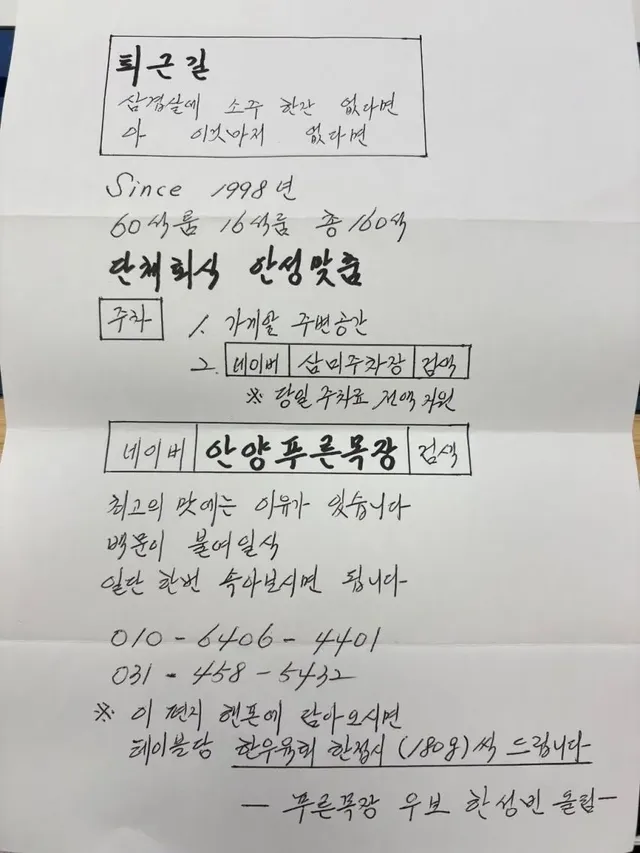 퇴근길
삼겹살에 소주 한잔 없다면
아 이것마저 없다면
Since 1998년
60석룸 16석룸 총 160석
단체회식 안성맞춤
주차 1. 가게앞 주변공간
2. 네이버 삼미주차장 검색
※ 당일 주차료 전액 지원
네이버 안양푸른목장 검색
최고의 맛에는 이유가 있습니다
백문이 불여일식
일단 한번 속아보시면 됩니다
010-6406-4401
031-458-5432
※ 이 편지 핸폰에 담아오시면
테이블당 한우육회 한접시 (180g)씩 드립니다
- 푸른목장 우보 한성빈 올림 -